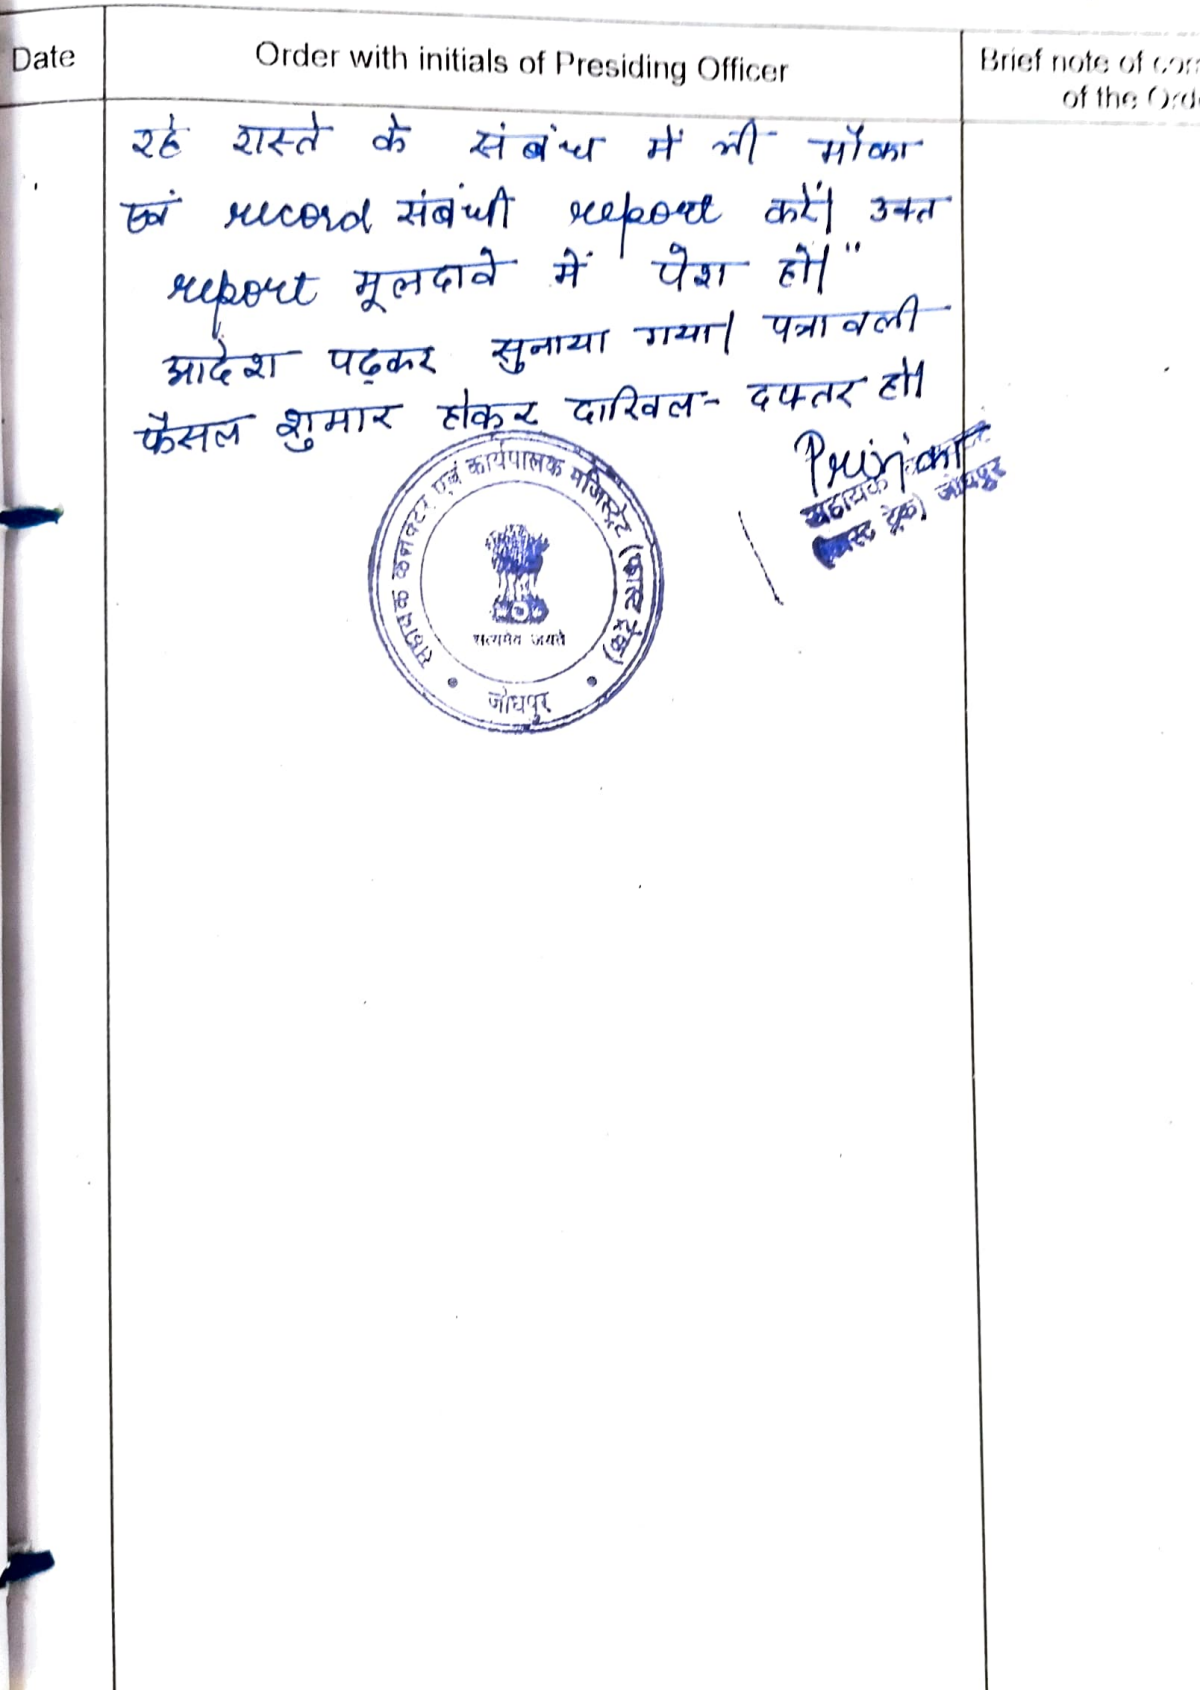 Date
Order with initials of Presiding Officer
Brief note of
of the
रहे रास्ते के संबंध में भी मौका
एवं record संबंधी report करें। उक्त
report मूलदावे में पेश हो।"
आदेश पढ़कर सुनाया गया। पत्रावली
फैसल शुमार होकर दाखिल- दफ्तर हो।
Priyanka
सहायक
ट्रेक) जोधपुर
सहायक कलक्टर एवं कार्यपालक मजिस्ट्रेट (फास्ट ट्रेक)
सत्यमेव जयते
जोधपुर